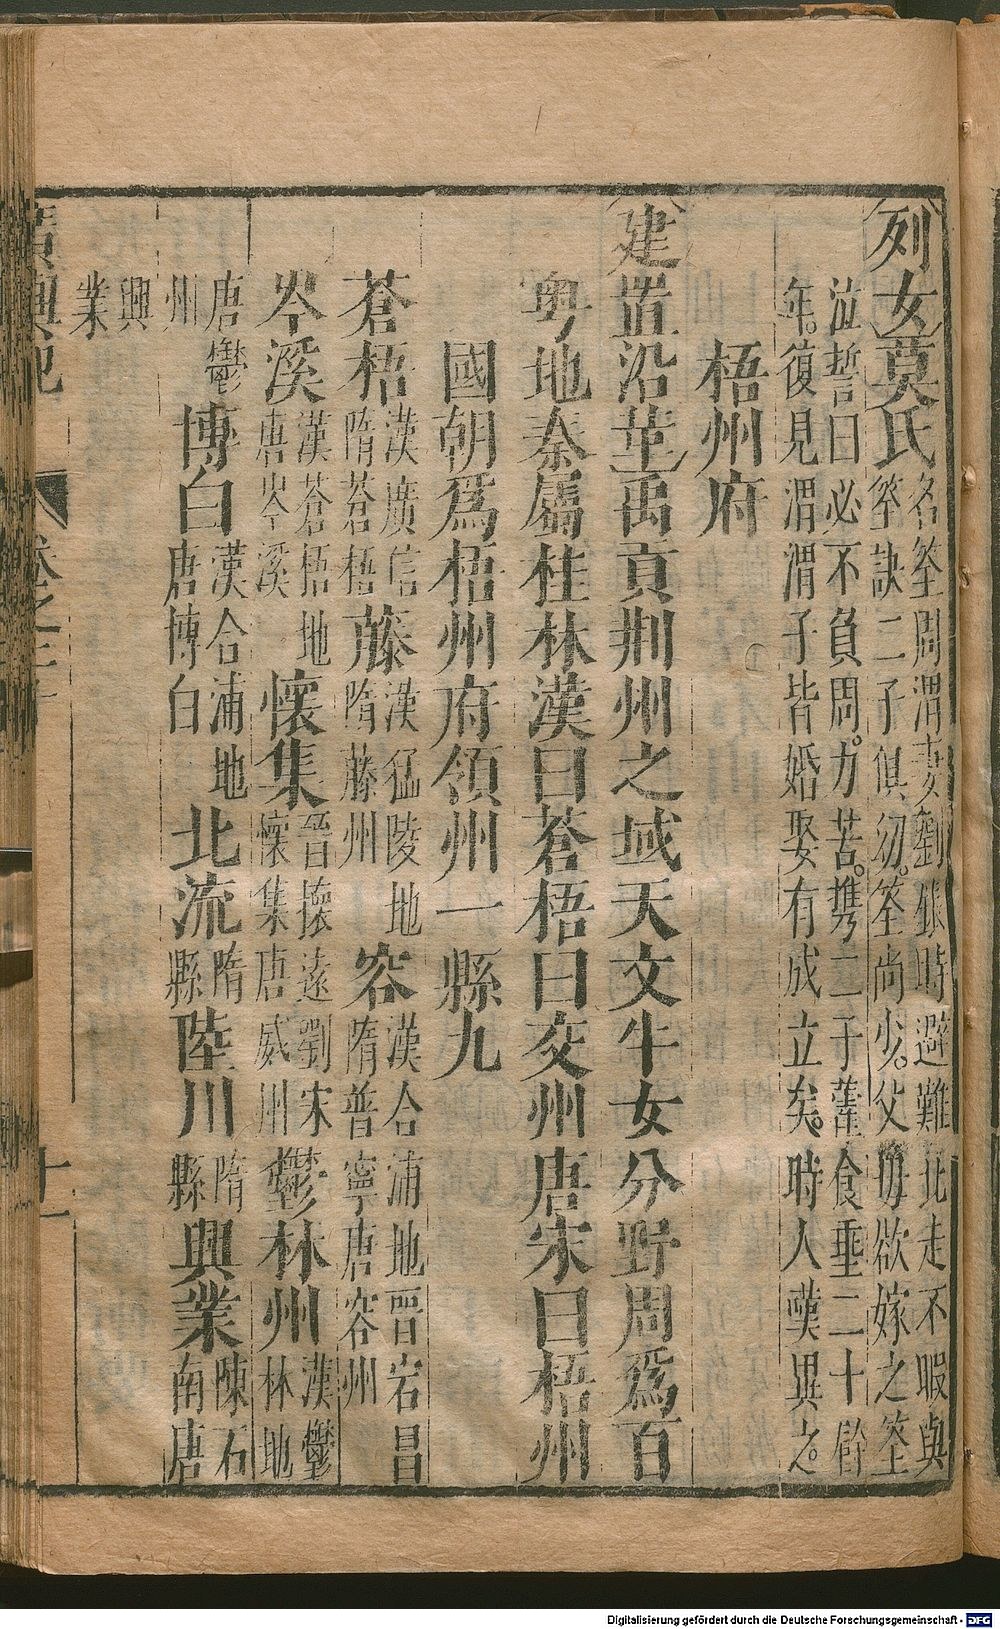 列女莫氏名筌周渭妻劉鋹時避難北走不暇與
筌訣二子俱幼筌尚少父母欲嫁之筌
泣誓曰必不負周力苦攜二子蘿食垂二十餘
年復見渭渭子皆婚娶有成立矣時人嘆異之
梧州府
建置沿革禹貢荆州之域天文牛女分野周爲百
粤地秦屬桂林漢曰蒼梧曰交州唐宋曰梧州
國朝爲梧州府領州一縣九
蒼梧漢廣信隋蒼梧藤漢猛陵地隋藤州容漢合浦地晋宕昌隋普寧唐容州
岑溪漢蒼梧地唐岑溪懷集晉懷遠劉宋懷集唐威州鬱林州漢鬱林地
唐鬱州博白漢合浦地唐博白北流隋縣陸川隋縣興業陳石南唐
興業
廣輿記 卷之二十 十一
Digitalisierung gefördert durch die Deutsche Forschungsgemeinschaft - DFG